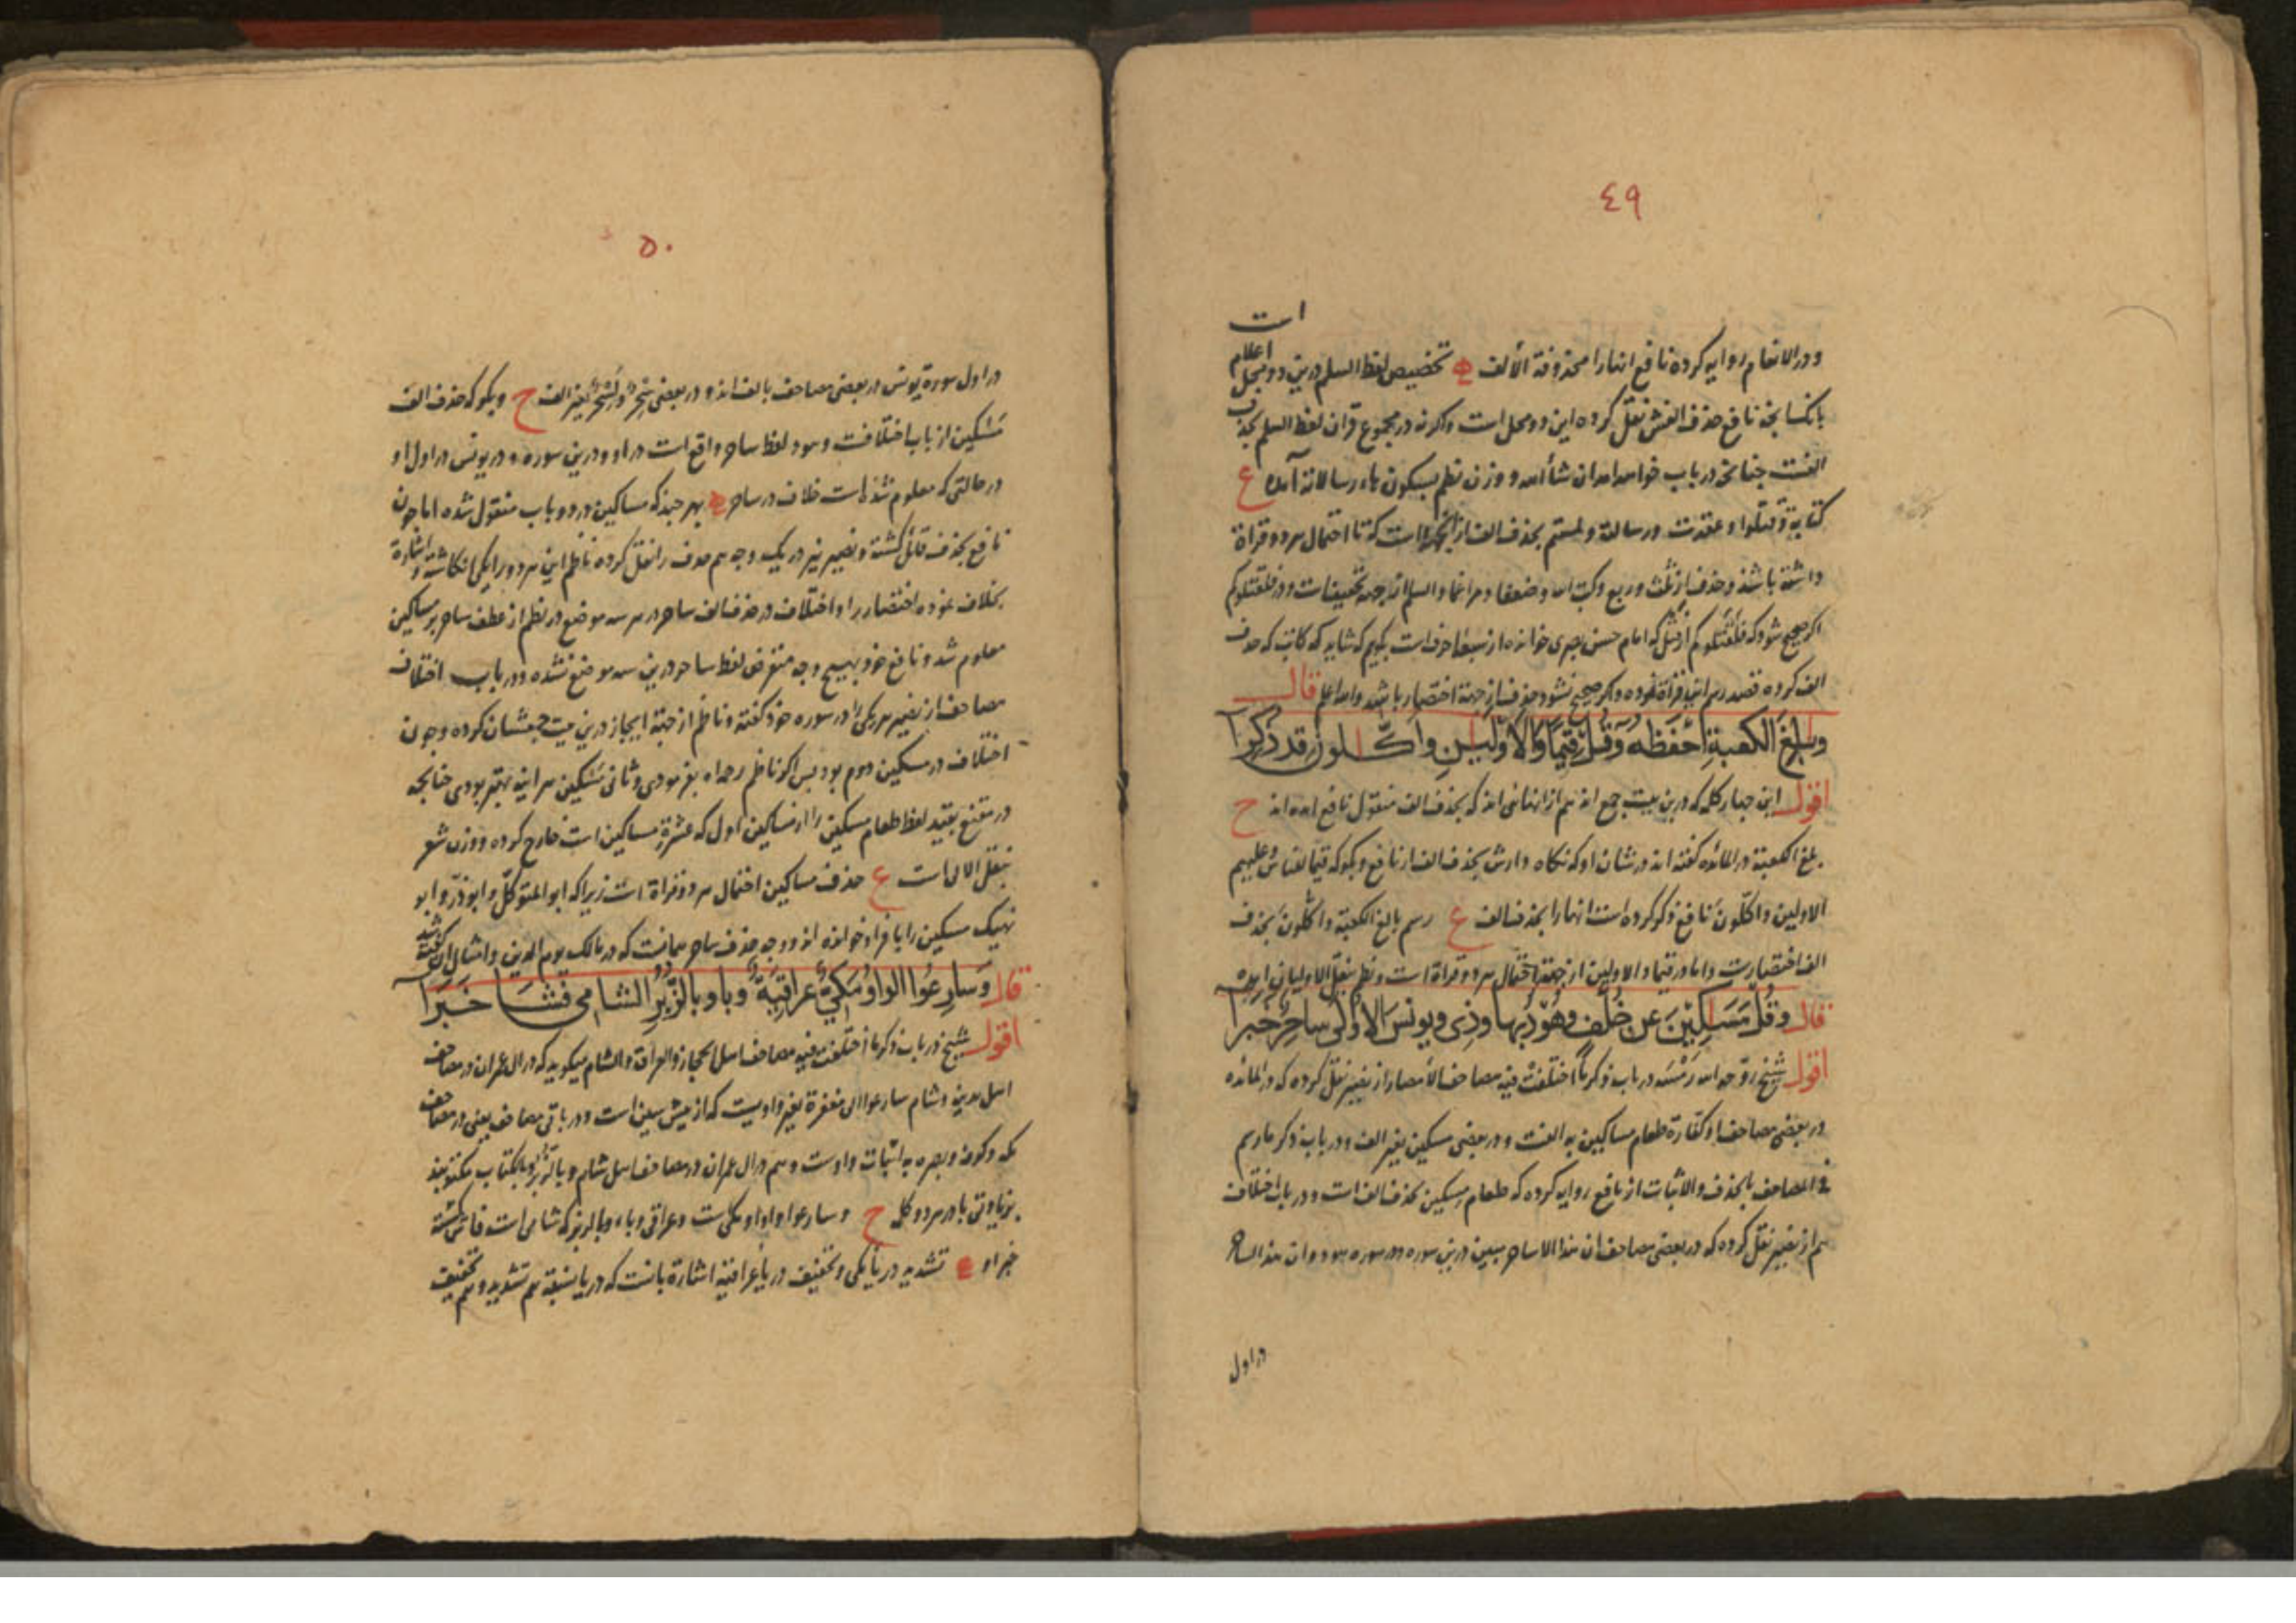 ٤٩
ات
ودر الانعام روایه کرده نافع انها را محذوفة الألف تخصیص لفظ السلم درین دو محل
اعلام
بانکسا بجه نافع حذف الفش نقل کرده این دو محل است واکر نه در مجموع قران لفظ السلم بحذف
الفست چنانجه در باب خواهد امد ان شأ الله ووزن نظم بسکون یاء رسالاته آمده ع
داشته باشد وحذف از ثلث وربع وکتب الله وضعفا ومراغما والسلم از جهة تخفیفات ودر فلقتلوکم
اکر صحیح شود که فلقتلوکم که امام حسن بصری خوانده از سبعة احرف است بکویم که شاید که کاتب که حذف
الف کرده قصد رسم این قراة نموده واکر صحیح نشود حذف از جهة اختصار باشد والله اعلم قال
وبالغ الكعبة احفظه وقل قيما والاولين واكلون قد ذكرا
اقول این چهار کلمه که درین بیت جمع اند هم از انهائی اند که بحذف الف منقول نافع امده اند ح
بلغ الکعبة در المائده کفته اند در نشان او که نکاه دارش بحذف الف از نافع وبکو که قیما لقاس وعلیهم
الاولین واکلون نافع ذکر کرده است انها را بحذف الف ع رسم بالغ الکعبة واکلون بحذف
الف اختصارست واما در قیما والاولین از جهة احتمال هر دو قراة است ونظم بنقل الاولیان امده
قال وقل مساكين عن خلف وهود بها وذي ويونس الاولى ساحر خبرا
اقول شیخ روّح الله رمسه در باب ذکر ما اختلفت فیه مصاحف الأمصار از نصیر نقل کرده که در المائده
در بعضی مصاحف او کفارة طعام مساکین به الفست ودر بعضی مسکین بغیر الف ودر باب ذکر ما رسم
فی المصاحف بالحذف والاثبات از نافع روایه کرده که طعام مسکین بحذف الف است ودر باب اختلاف
هم از نصیر نقل کرده که در بعضی مصاحف ان هذا الا ساحر مبین درین سوره ودر سوره هود وان هذا لساحر
در اول
٥٠
در اول سورة یونس در بعضی مصاحف بالف اند ودر بعضی بغیر الف ح وبکو که حذف الف
مسکین از باب اختلافست وهود لفظ ساحر واقع است در او ودرین سوره ودر یونس در اول او
در حالتی که معلوم شده است خلاف در ساحر بهر چند که مساکین در دو باب منقول شده اما چون
نافع بحذف قائل کشته ونصیر نیز در یک وجه هم حذف را نقل کرده ناظم این هر دو را یکی انکاشته واشارة
بخلاف نموده اختصار را واختلاف در حذف الف ساحر در هر سه موضع در نظم از عطف ساحر بر مساکین
معلوم شد ونافع خود بهیچ وجه متعرض لفظ ساحر درین سه موضع نشده ودر باب اختلاف
مصاحف از نصیر هر یکی را در سوره خود کفته وناظم از جهة ایجاز درین بیت جمعشان کرده وچون
اختلاف در مسکین دوم بود پس اکر ناظم رحمه الله بفرمودی وثانی مسکین هر اینه بهتر بودی چنانجه
در مقنع بقید لفظ طعام مسکین را از مساکین اول که عشرة مساکین است خارج کرده ووزن شعر
بنقل الاولی است ع حذف مساکین احتمال هر دو قراة است زیرا که ابو المتوکل وابو ذرّ وابو
نهیک مسکین را بافراد خوانده اند ووجه حذف ساحر همانست که در مالک یوم الدین وامثال ان کفته شد
قال وسارعوا الواو مكي عراقية وبا وبالزبر الشامي فشا خبرا
اقول شیخ در باب ذکر ما اختلفت فیه مصاحف اهل الحجاز والعراق والشام میکوید که در ال عمران در مصاحف
اهل مدینه وشام سارعوا الی مغفرة بغیر واویست که از پیش سین است ودر باقی مصاحف یعنی در مصاحف
مکه وکوفه وبصره به اثبات واوست وهم در ال عمران در مصاحف اهل شام وبالزبر وبالکتاب مکتوبند
بزیادتی با در هر دو کلمه ح وسارعوا واو او مکی ست وعراقی وباء وبالزبر که شامی است فاش کشته
خبر او تشدید در یا مکی وتخفیف در یا عراقیة اشارة بانست که در یا نسبة هم تشدید وهم تخفیف